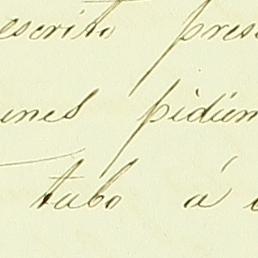 escrito pres
unes pidien
tabo á